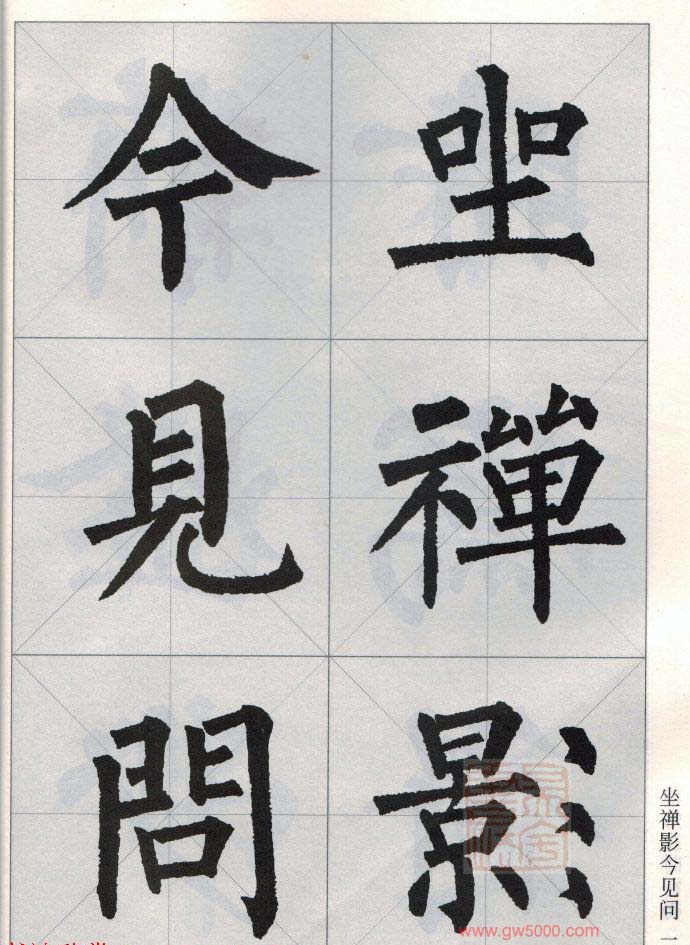 坐禪影
今見問
坐禅影今见问 一
www.gw5000.com